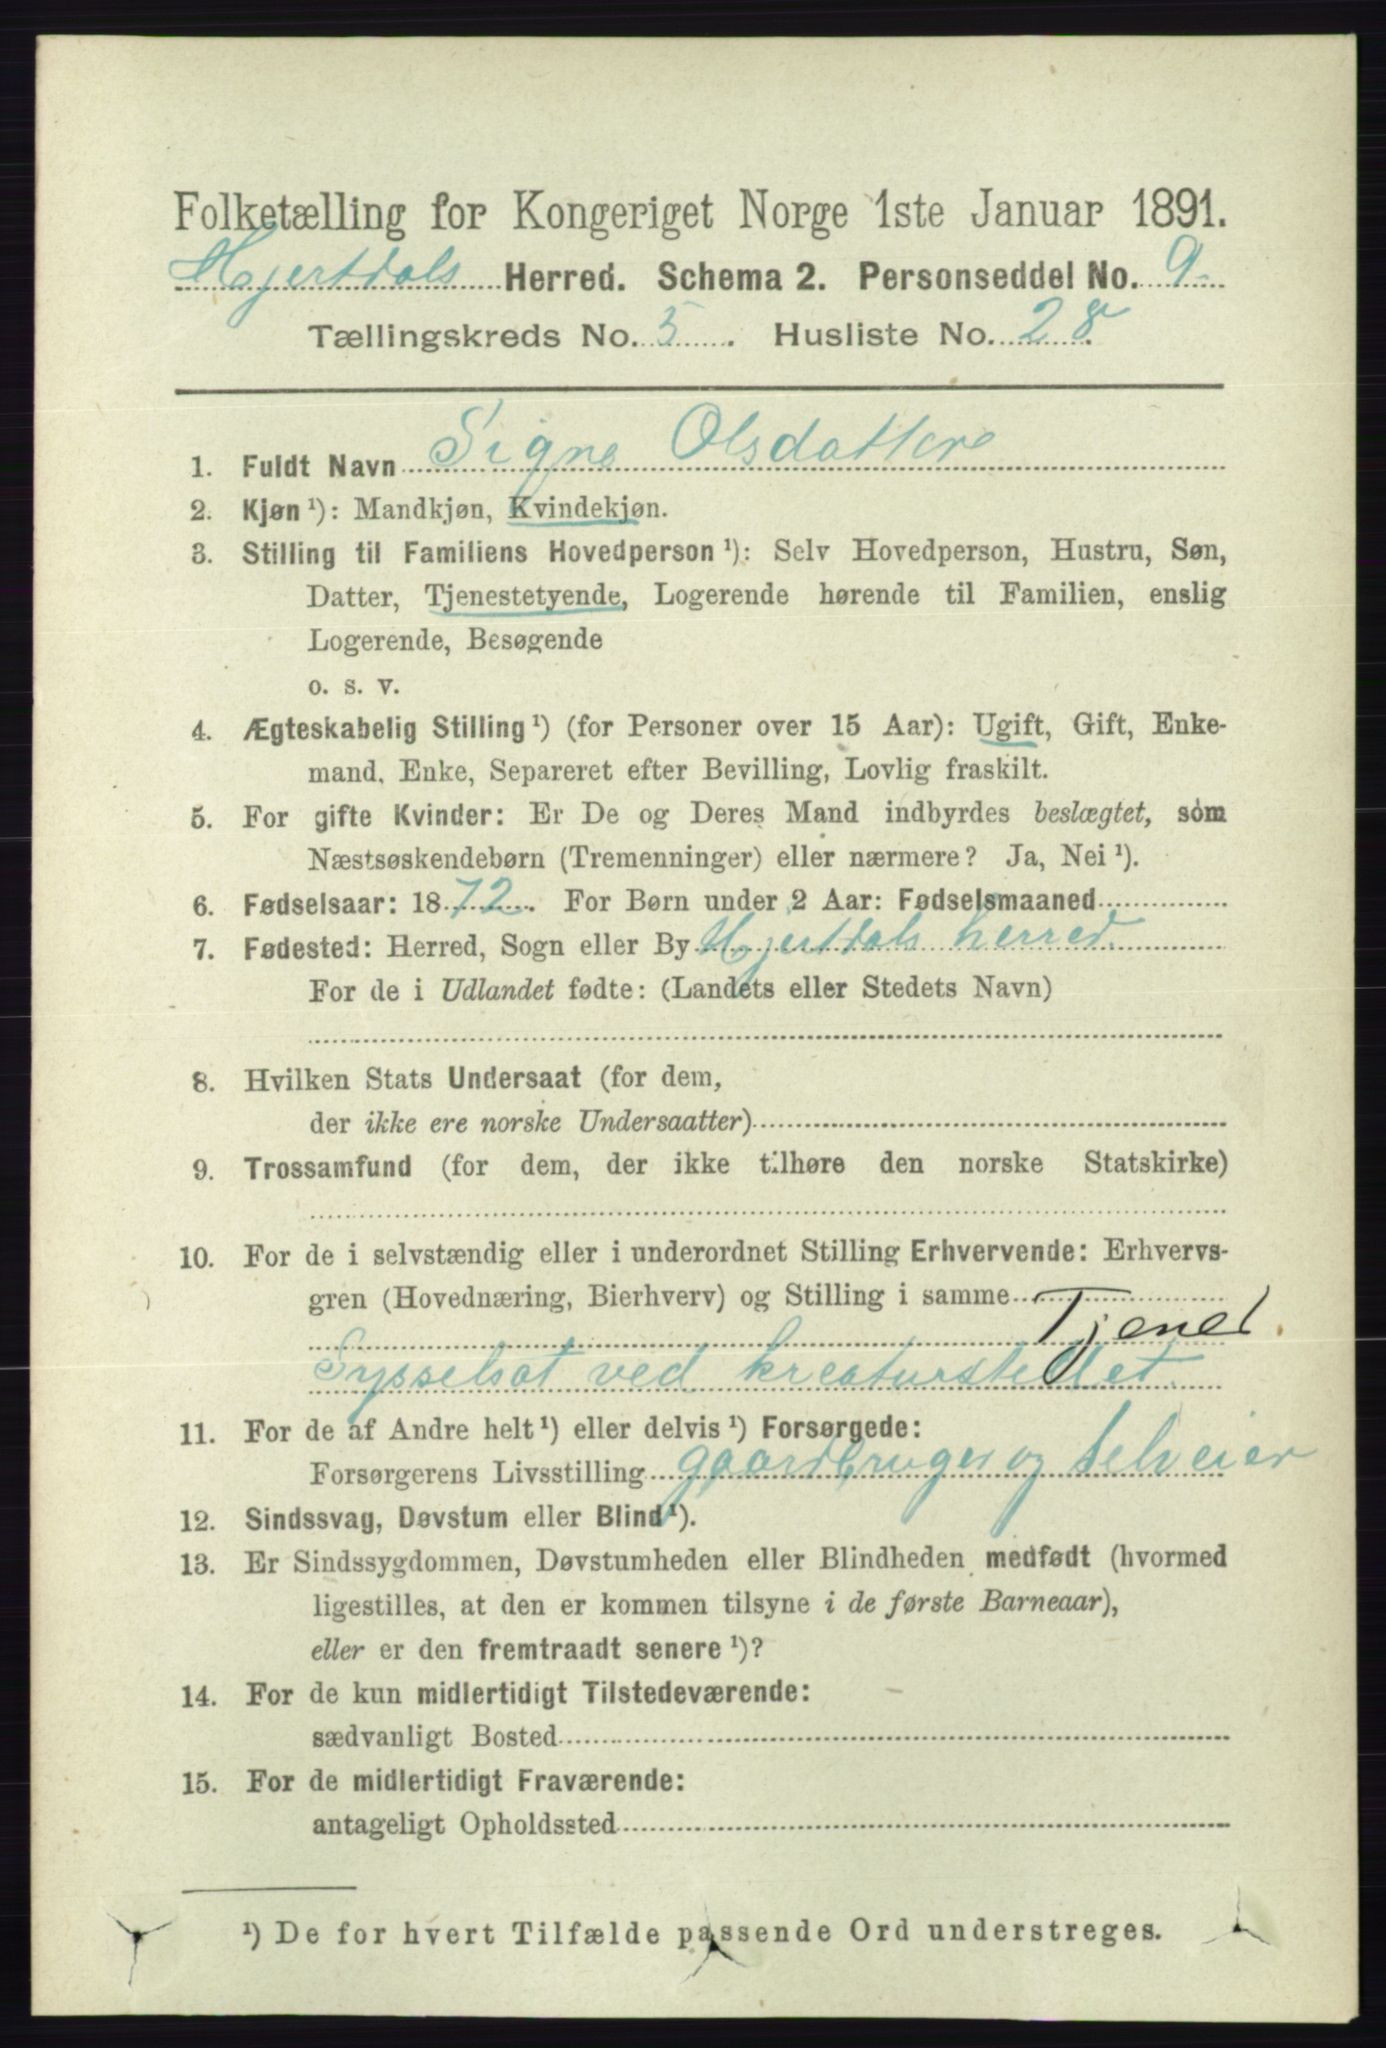 Folketælling for Kongeriget Norge 1ste Januar 1891.
Hjertdals Herred. Schema 2. Personseddel No. 9
Tællingskreds No. 5. Husliste No. 28.
1. Fuldt Navn Signe Olsdatter
2. Kjøn ¹): Mandkjøn, Kvindekjøn.
3. Stilling til Familiens Hovedperson ¹): Selv Hovedperson, Hustru, Søn,
Datter, Tjenestetyende, Logerende hørende til Familien, enslig
Logerende, Besøgende
o. s. v.
4. Ægteskabelig Stilling ¹) (for Personer over 15 Aar): Ugift, Gift, Enke-
mand, Enke, Separeret efter Bevilling, Lovlig fraskilt.
5. For gifte Kvinder: Er De og Deres Mand indbyrdes beslægtet, som
Næstsøskendebørn (Tremenninger) eller nærmere? Ja, Nei ¹).
6. Fødselsaar: 1872. For Børn under 2 Aar: Fødselsmaaned
7. Fødested: Herred, Sogn eller By Hjertdals herred.
For de i Udlandet fødte: (Landets eller Stedets Navn)
8. Hvilken Stats Undersaat (for dem,
der ikke ere norske Undersaatter)
9. Trossamfund (for dem, der ikke tilhøre den norske Statskirke)
10. For de i selvstændig eller i underordnet Stilling Erhvervende: Erhvervs-
gren (Hovednæring, Bierhverv) og Stilling i samme
Tjener
Sysselsat ved kreaturstellet
11. For de af Andre helt ¹) eller delvis ¹) Forsørgede:
Forsørgerens Livsstilling gaardbruger og selveier
12. Sindssvag, Døvstum eller Blind ¹).
13. Er Sindssygdommen, Døvstumheden eller Blindheden medfødt (hvormed
ligestilles, at den er kommen tilsyne i de første Barneaar),
eller er den fremtraadt senere ¹)?
14. For de kun midlertidigt Tilstedeværende:
sædvanligt Bosted
15. For de midlertidigt Fraværende:
antageligt Opholdssted
¹) De for hvert Tilfælde passende Ord understreges.